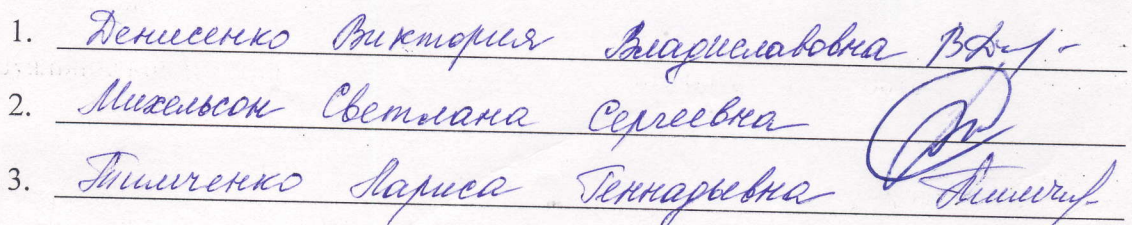 1. Денисенко Виктория Владиславовна
2. Михельсон Светлана Сергеевна
3. Тимченко Лариса Геннадьевна